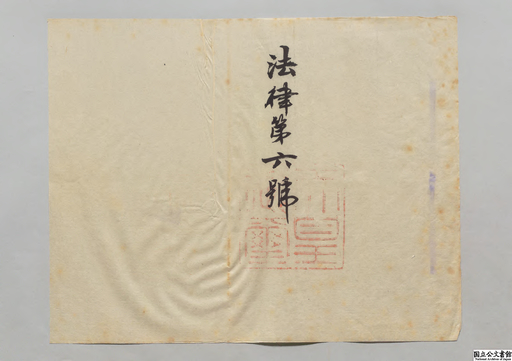 法律第六號
天皇御璽
国立公文書館
National Archives of Japan